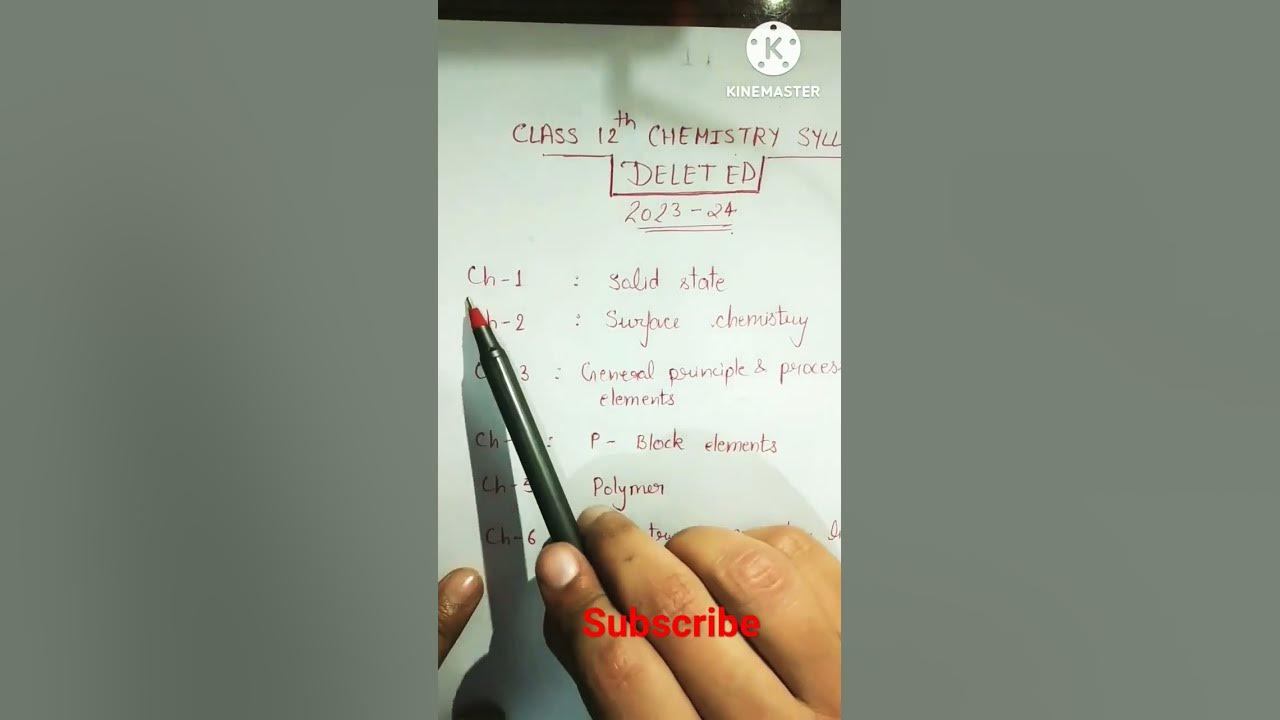 KINEMASTER
CLASS 12th CHEMISTRY SYLL
DELETED
2023-24
Ch-1 : Solid state
Ch-2 : Surface chemistry
3 : General principle & proces
elements
Ch- : P- Block elements
Ch-5 Polymer
Ch-6
Subscribe